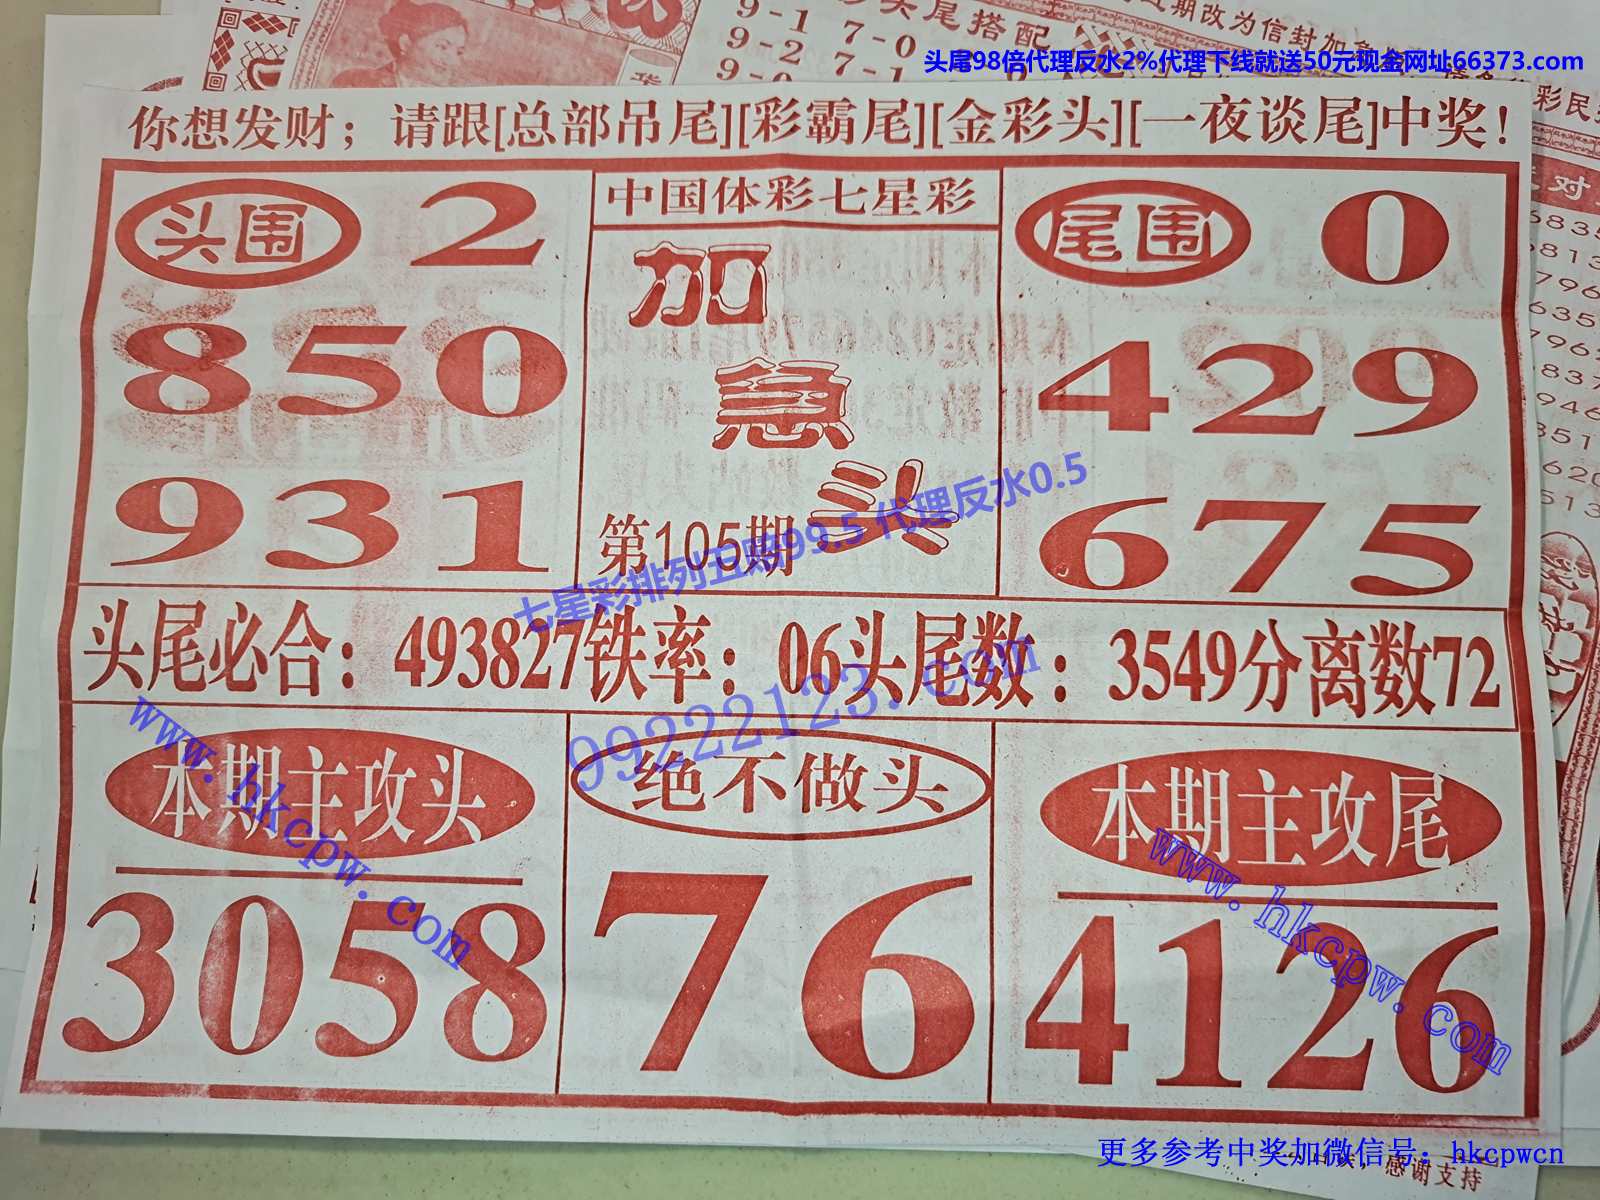 9-1 7-0
头尾搭配
期改为信封加急
9-2 7-1
头尾98倍代理反水2%代理下线就送50元现金网址66373.com
彩民
你想发财；请跟[总部吊尾][彩霸尾][金彩头][一夜谈尾]中奖！
头围 2
中国体彩七星彩
尾围 0
加
急
头
850
429
931
第105期
675
七星彩排列五赔99.5 代理反水0.5
99222123.com
头尾必合：493827铁率：06头尾数：3549分离数72
www.hkcpw.com
本期主攻头
绝不做头
本期主攻尾
www.hkcpw.com
3058
76
4126
更多参考中奖加微信号：hkcpwcn
感谢支持